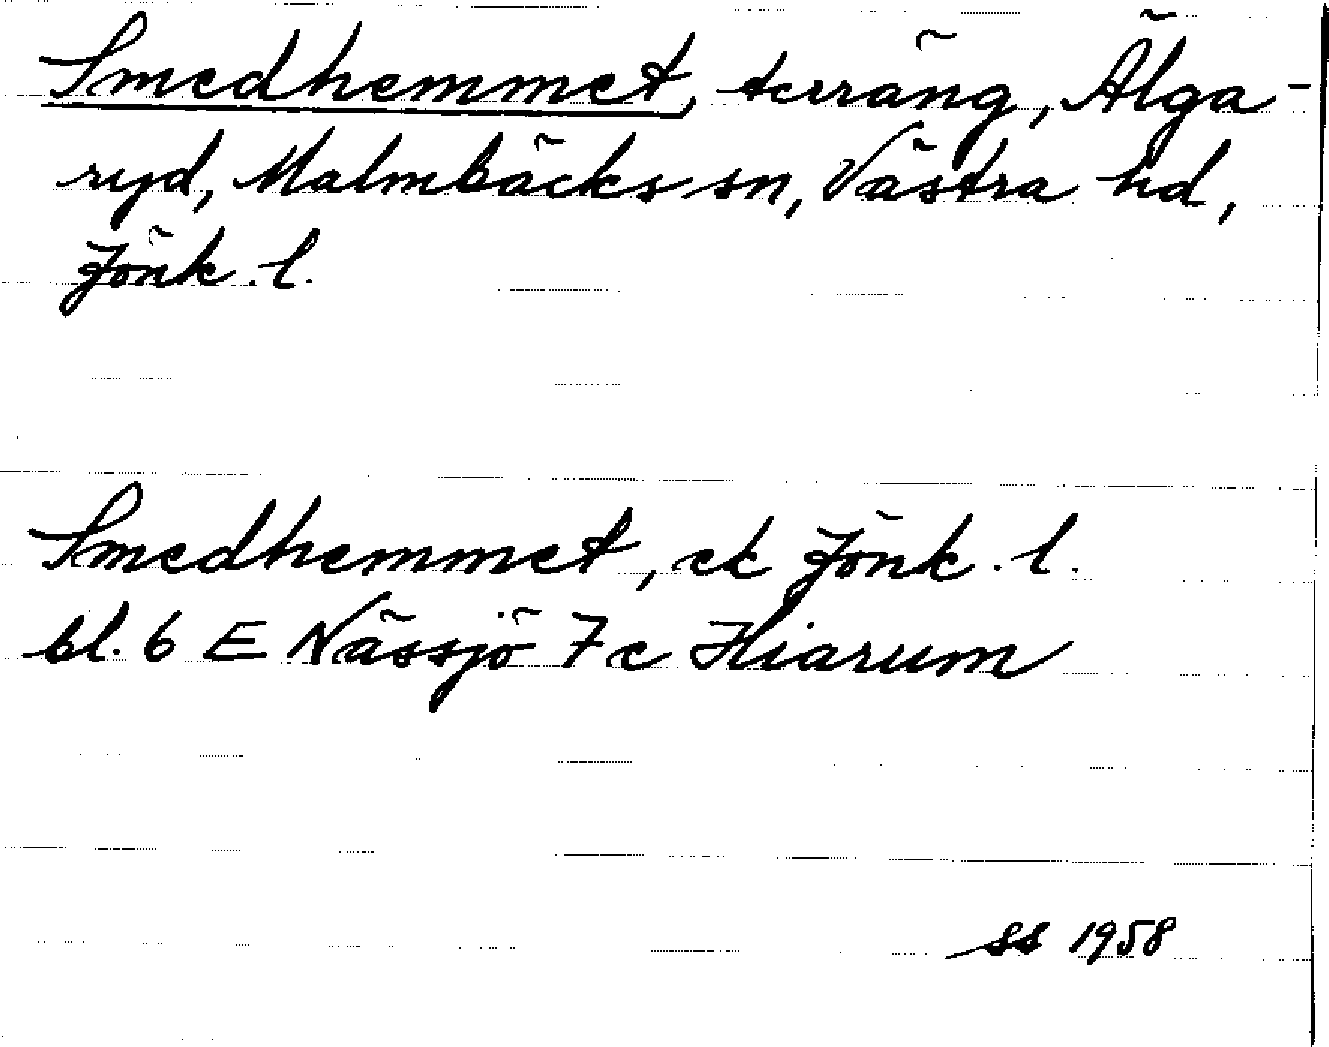 Smedhemmet, terräng, Älga-
ryd, Malmbäcks sn, Västra hd,
Jönk. l.
Smedhemmet, ek Jönk. l.
bl. 6 E Nässjö 7c Hiarum
ss 1958